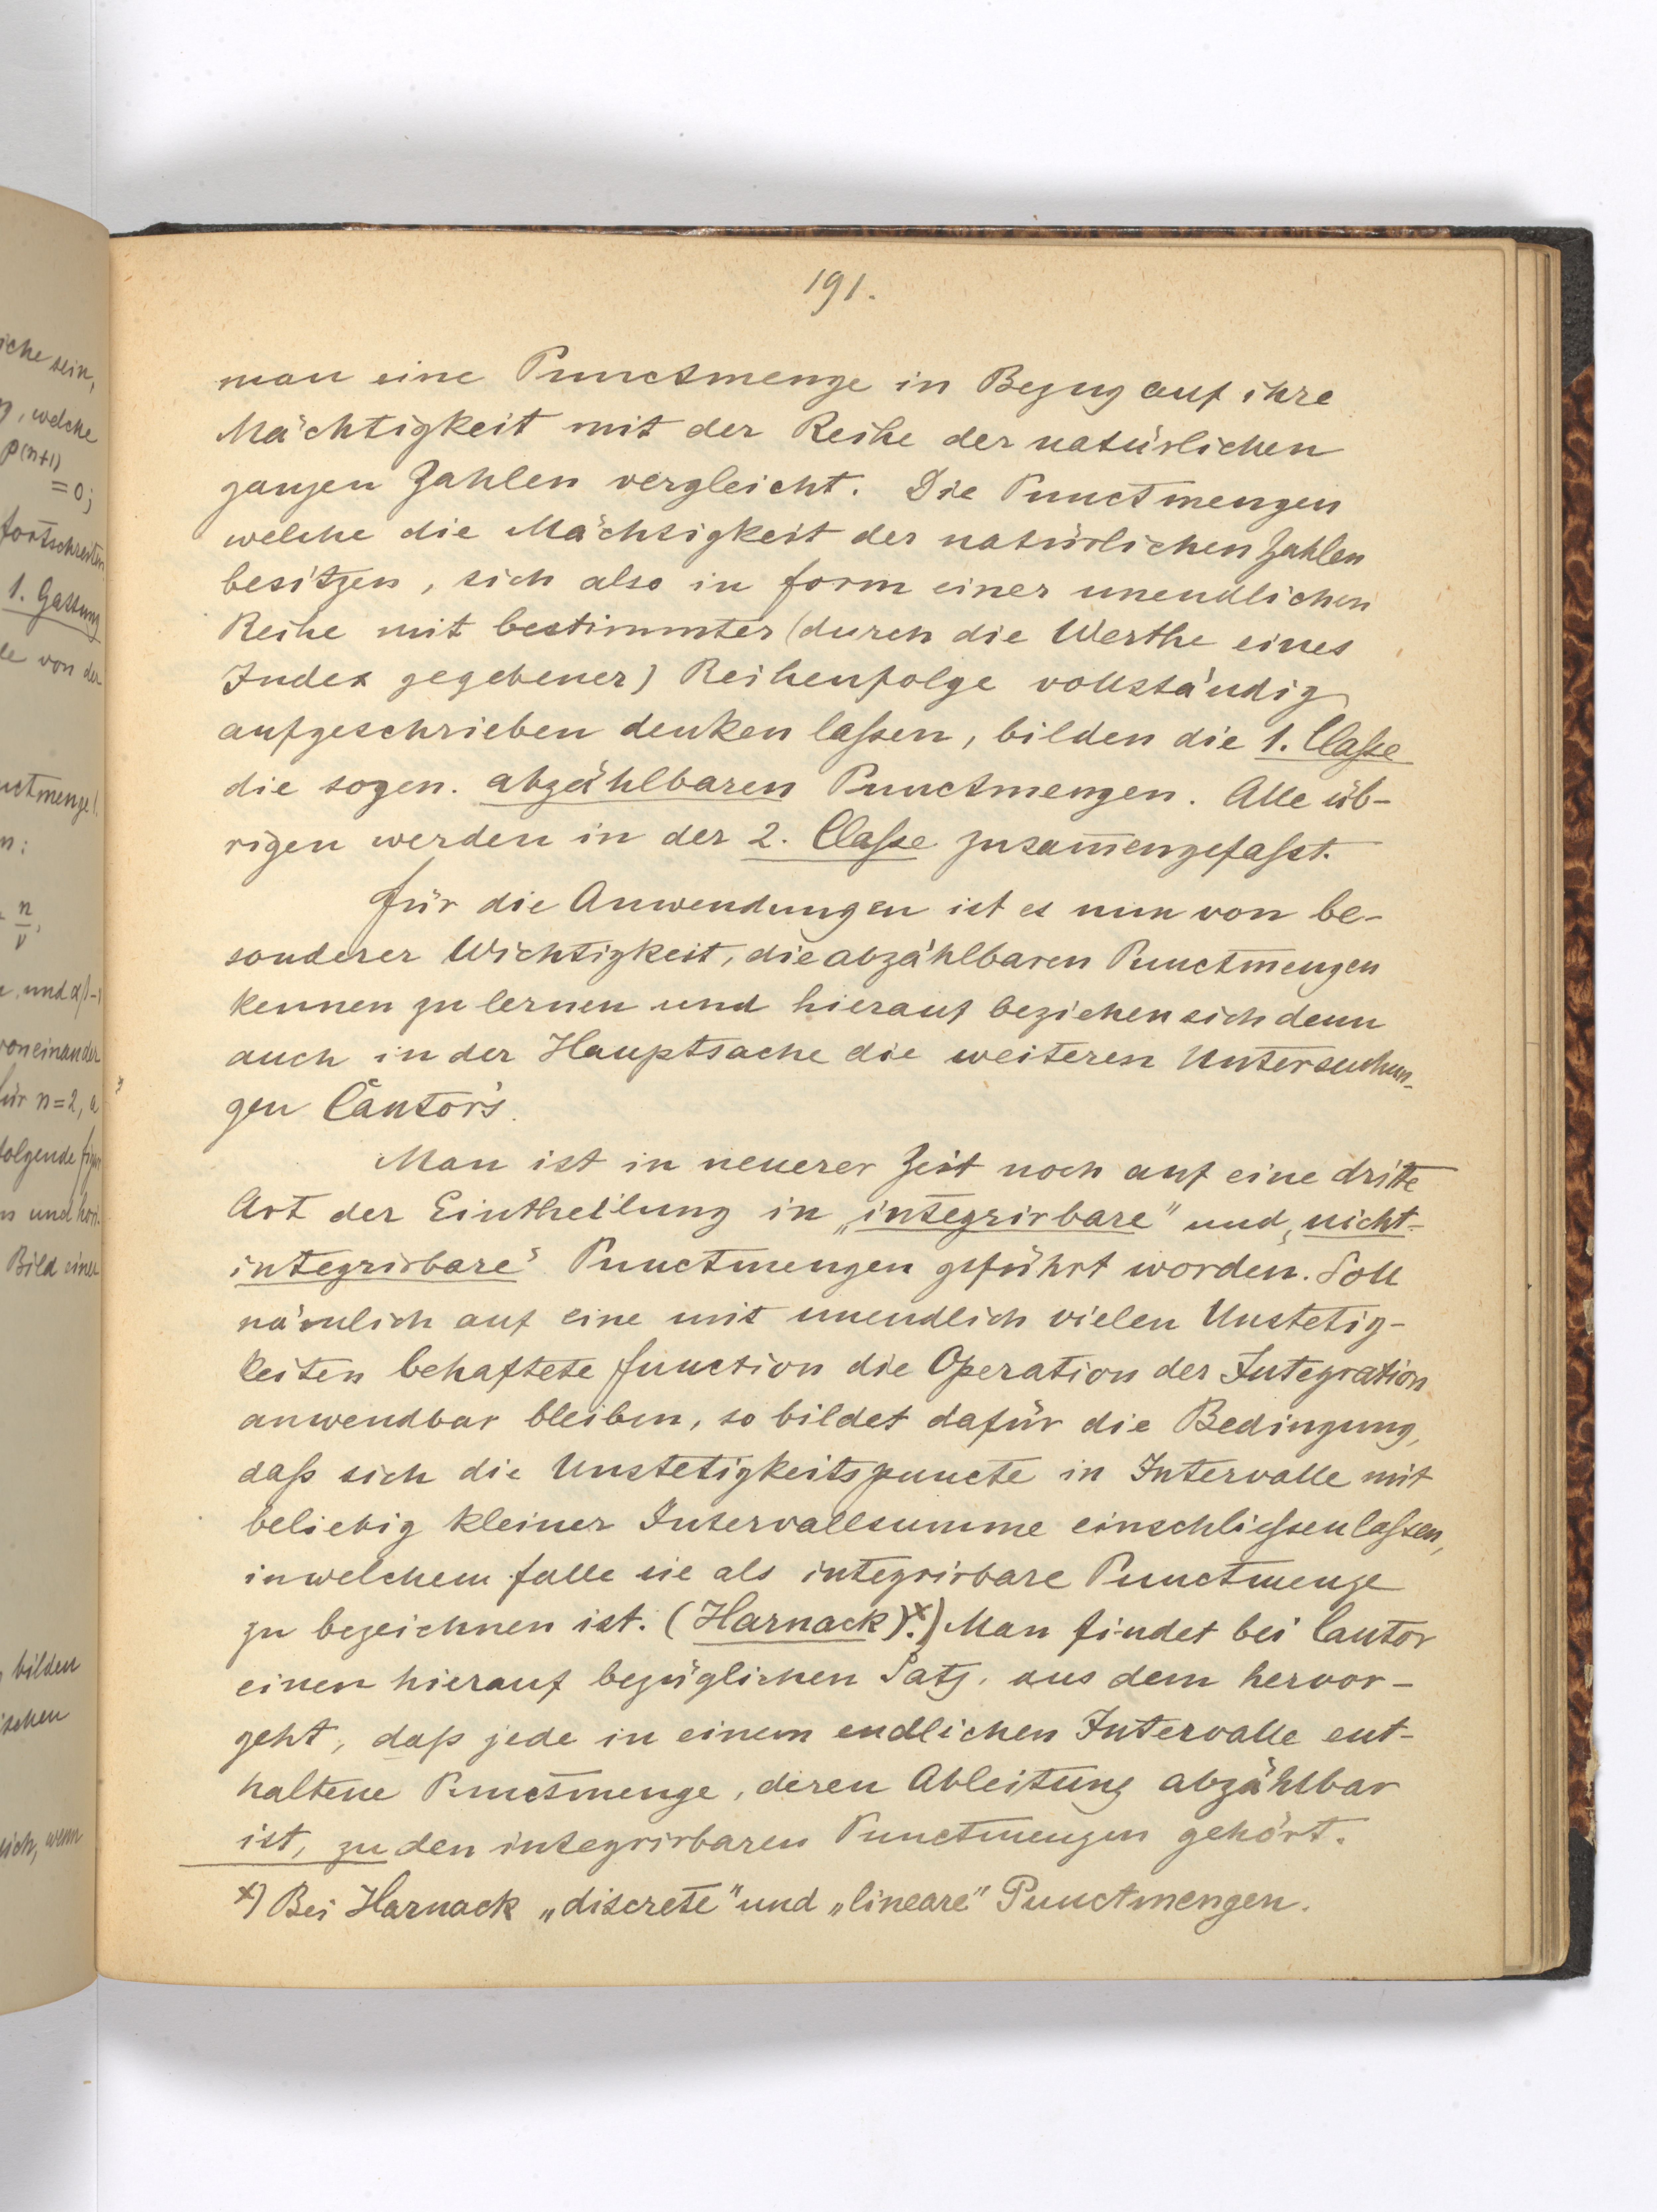 191.
man eine Punctmenge in Bezug auf ihre
Mächtigkeit mit der Reihe der natürlichen
ganzen Zahlen vergleicht. Die Punctmengen
welche die Mächtigkeit der natürlichen Zahlen
besitzen, sich also in form einer unendlichen
Reihe mit bestimmter (durch die Werthe eines
Index gegebener) Reihenfolge vollständig
aufgeschrieben denken laſsen, bilden die 1. Claſse
die sogen. abzählbaren Punctmengen. Alle üb-
rigen werden in der 2. Claſse zusam̅engefaſst.
für die Anwendungen ist es nun von be-
sonderer Wichtigkeit, die abzählbaren Punctmengen
kennen zu lernen und hierauf beziehen sich denn
auch in der Hauptsache die weiteren Untersuchun-
gen Cantor's.
Man ist in neuerer Zeit noch auf eine dritte
Art der Eintheilung in „integrirbare" und „nicht-
integrirbare" Punctmengen geführt worden. Soll
nämlich auf eine mit unendlich vielen Unstetig-
keiten behaftete function die Operation der Integration
anwendbar bleiben, so bildet dafür die Bedingung,
daß sich die Unstetigkeitspuncte in Intervalle mit
beliebig kleiner Intervallsumme einschlieſsen laſsen,
in welchem falle sie als integrirbare Punctmenge
zu bezeichnen ist. (Harnack)ˣ⁾. Man findet bei Cantor
einen hierauf bezüglichen Satz, aus dem hervor-
geht, daß jede in einem endlichen Intervalle ent-
haltene Punctmenge, deren Ableitung abzählbar
ist, zu den integrirbaren Punctmengen gehört.
x) Bei Harnack „discrete" und „lineare" Punctmengen.
iche sein,
, welche
p(n+1)
= 0;
fortschreiten
1. Gattung
le von der
n:
n
ν
, und
von einander
für n = 2,
folgende
und
Bild einer
bilden
wenn